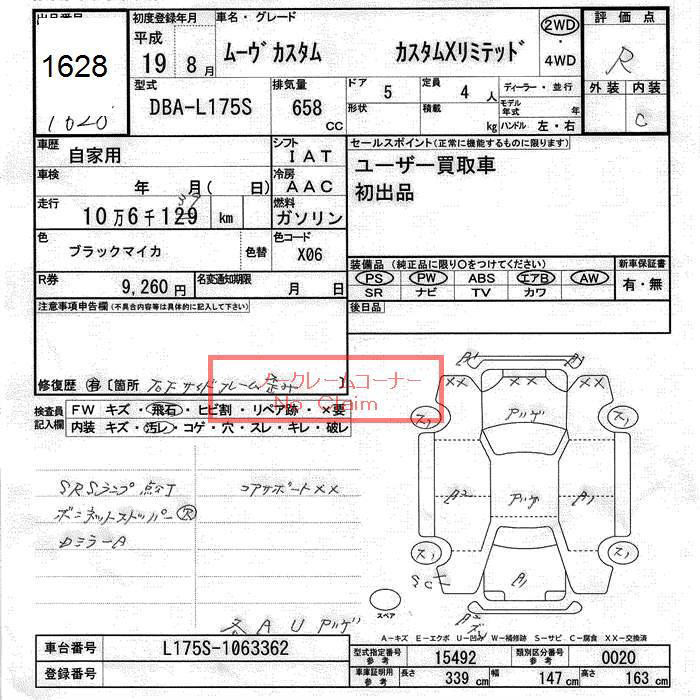 出品番号
1628
1020
初度登録年月
平成
19 8月
車名・グレード
ムーヴカスタム カスタムXリミテッド
2WD
・
4WD
評価点
R
外装 内装
C
型式
DBA-L175S
排気量
658
CC
ドア 5
定員 4 人
形状
積載 kg
ディーラー・並行
モデル年式 年
ハンドル 左・右
車歴 自家用
シフト IAT
車検 年 月( 日)
冷房 AAC
走行 10万6千129 km
燃料 ガソリン
色 ブラックマイカ 色替
色コード X06
R券 9,260円
名変通知期限 月 日
セールスポイント(正常に機能するものに限ります)
ユーザー買取車
初出品
装備品(純正品に限り○をつけてください)
PS PW ABS エアB AW
SR ナビ TV カワ
新車保証書
有・無
後日品
注意事項申告欄(不具合内容等は具体的に記入して下さい)
修復歴 有〔箇所 右Fサイドフレーム歪み 〕
ノークレームコーナー
No Claim
検査員記入欄
FW キズ・飛石・ヒビ割・リペア跡・×要
内装 キズ・汚レ・コゲ・穴・スレ・キレ・破レ
SRSランプ点灯
コアサポートXX
ボンネットストッパーR
カミラーA
各AUアリゲ
A1 A1
XX XX
アリゲ
A2 アリゲ A1
A1
スペア
A-キズ E-エクボ U-凹み W-補修跡 S-サビ C-腐食 XX-交換済
車台番号 L175S-1063362
登録番号
型式指定番号 参考 15492
類別区分番号 参考 0020
車庫証明用 参考 長さ 339 cm 幅 147 cm 高さ 163 cm